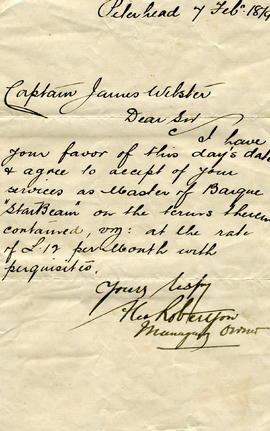 Peterhead 7 Feb. 18
Captain James Webster
Dear Sir
I have
your favor of this day's date
& agree to accept of your
services as Master of Barque
"Star Beam" on the terms therein
contained, viz: at the rate
of £12 per Month with
perquisites.
Yours respy
Robertson
Managing Owner